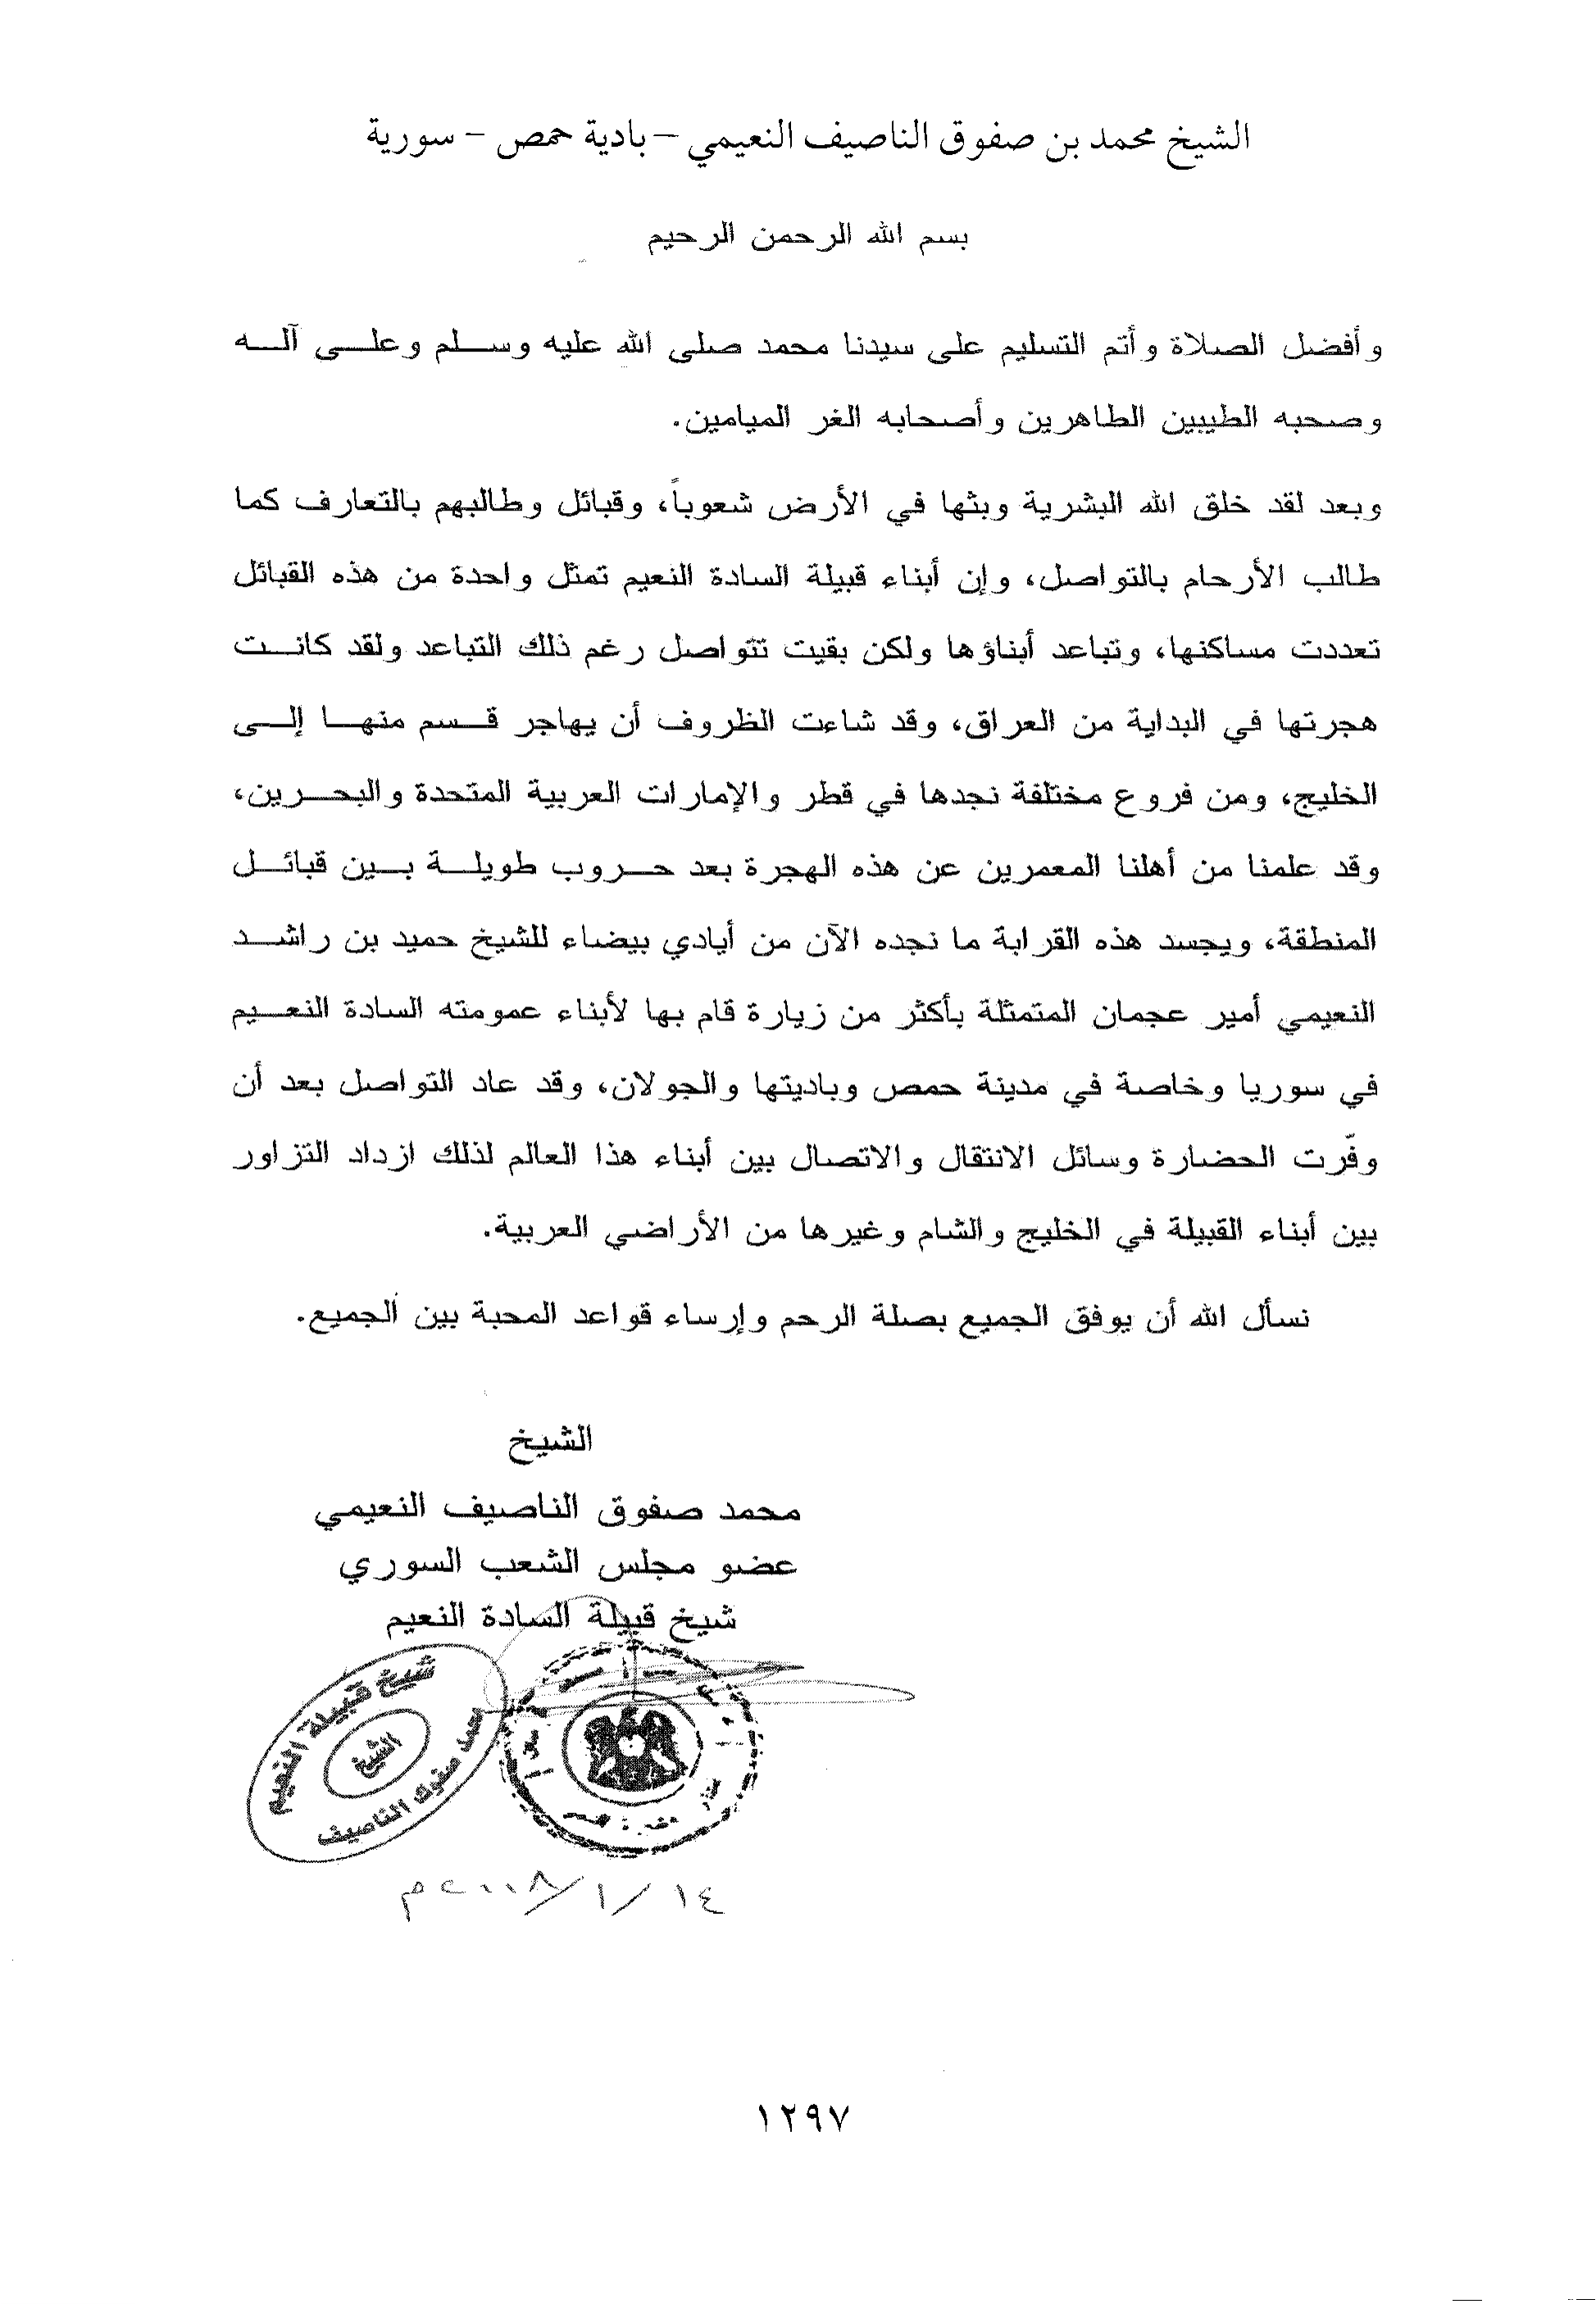 الشيخ محمد بن صفوق الناصيف النعيمي – بادية حمص – سورية
بسم الله الرحمن الرحيم
وأفضل الصلاة وأتم التسليم على سيدنا محمد صلى الله عليه وسلم وعلى آله
وصحبه الطيبين الطاهرين وأصحابه الغر الميامين.
وبعد لقد خلق الله البشرية وبثها في الأرض شعوباً، وقبائل وطالبهم بالتعارف كما
طالب الأرحام بالتواصل، وإن أبناء قبيلة السادة النعيم تمثل واحدة من هذه القبائل
تعددت مساكنها، وتباعد أبناؤها ولكن بقيت تتواصل رغم ذلك التباعد ولقد كانت
هجرتها في البداية من العراق، وقد شاءت الظروف أن يهاجر قسم منها إلى
الخليج، ومن فروع مختلفة نجدها في قطر والإمارات العربية المتحدة والبحرين،
وقد علمنا من أهلنا المعمرين عن هذه الهجرة بعد حروب طويلة بين قبائل
المنطقة، ويجسد هذه القرابة ما نجده الآن من أيادي بيضاء للشيخ حميد بن راشد
النعيمي أمير عجمان المتمثلة بأكثر من زيارة قام بها لأبناء عمومته السادة النعيم
في سوريا وخاصة في مدينة حمص وباديتها والجولان، وقد عاد التواصل بعد أن
وفّرت الحضارة وسائل الانتقال والاتصال بين أبناء هذا العالم لذلك ازداد التزاور
بين أبناء القبيلة في الخليج والشام وغيرها من الأراضي العربية.
نسأل الله أن يوفق الجميع بصلة الرحم وإرساء قواعد المحبة بين الجميع.
الشيخ
محمد صفوق الناصيف النعيمي
عضو مجلس الشعب السوري
شيخ قبيلة السادة النعيم
شيخ قبيلة النعيم
الشيخ
محمد صفوك الناصيف
١٤/١/٢٠٠٨م
١٢٩٧